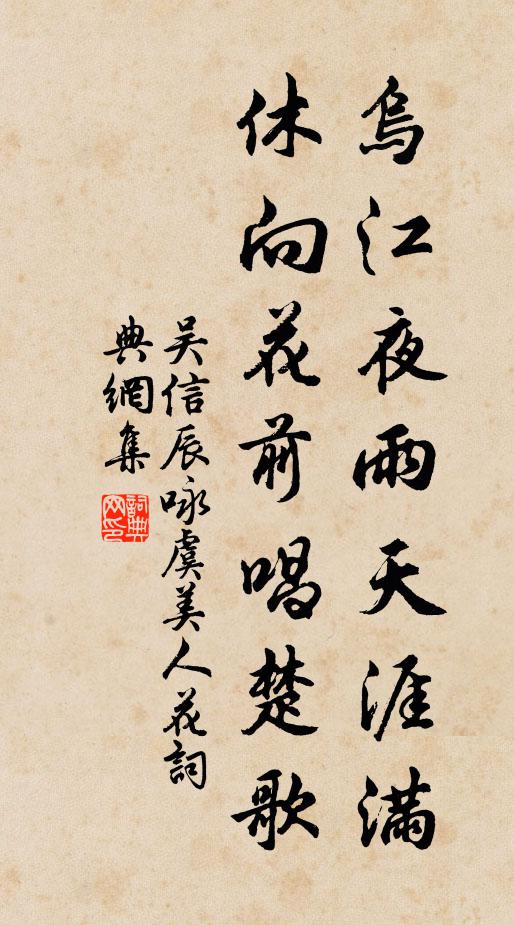 烏江夜雨天涯滿
休向花前唱楚歌
吳信辰咏虞美人花詞
典網集
詞典網印